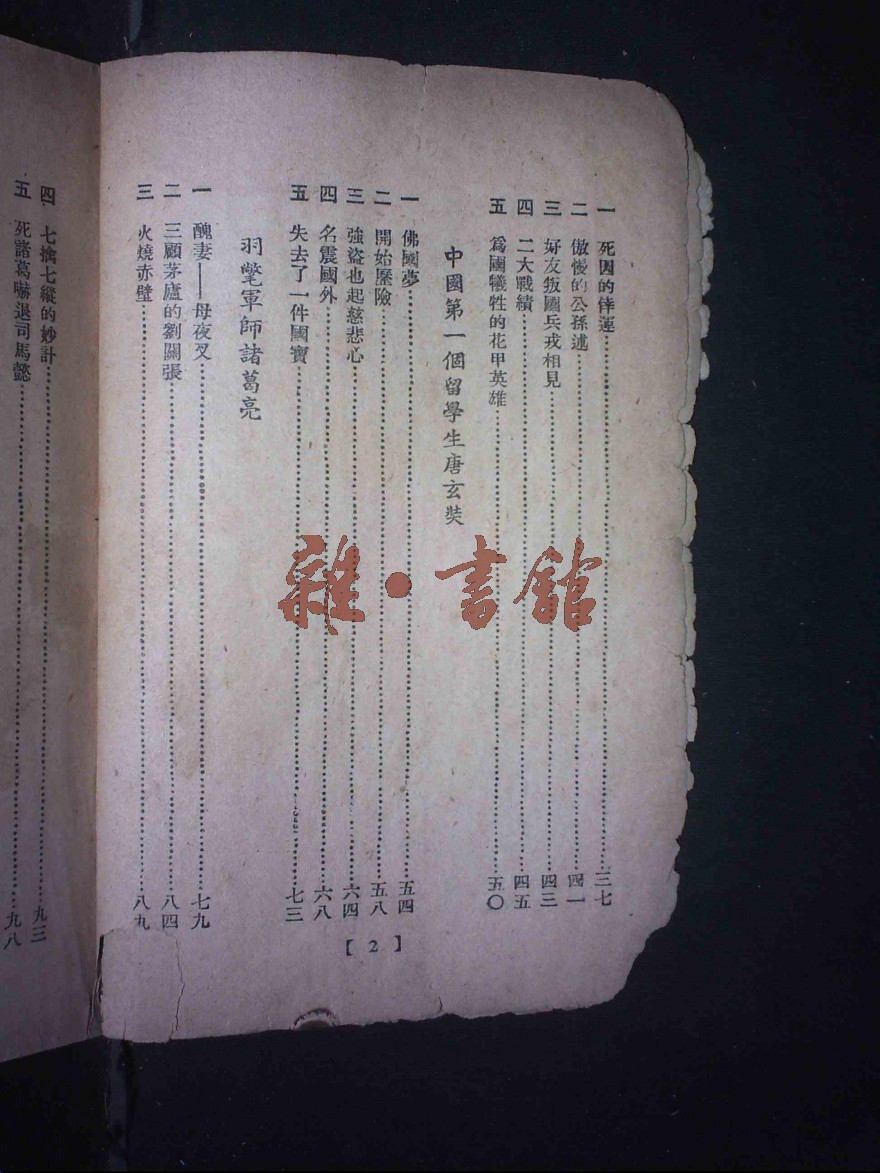 一 死囚的倖運……三七
二 傲慢的公孫述……四一
三 好友叛國兵戎相見……四三
四 二大戰績……四五
五 爲國犧牲的花甲英雄……五〇
中國第一個留學生唐玄奘
一 佛國夢……五四
二 開始歷險……五八
三 強盜也起慈悲心……六四
四 名震國外……六八
五 失去了一件國寶……七三
羽氅軍師諸葛亮
一 醜妻——母夜叉……七九
二 三顧茅廬的劉關張……八四
三 火燒赤壁……八九
【2】
四 七擒七縱的妙計……九三
五 死諸葛嚇退司馬懿……九八
雜·書館